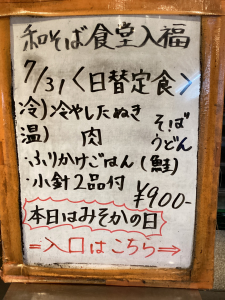 和そば食堂入福
7/31〈日替定食〉
冷)冷やしたぬき そば
温) 肉 うどん
・ふりかけごはん(鮭)
・小針2品付 ¥900-
本日はみそかの日
=入口はこちら⇒